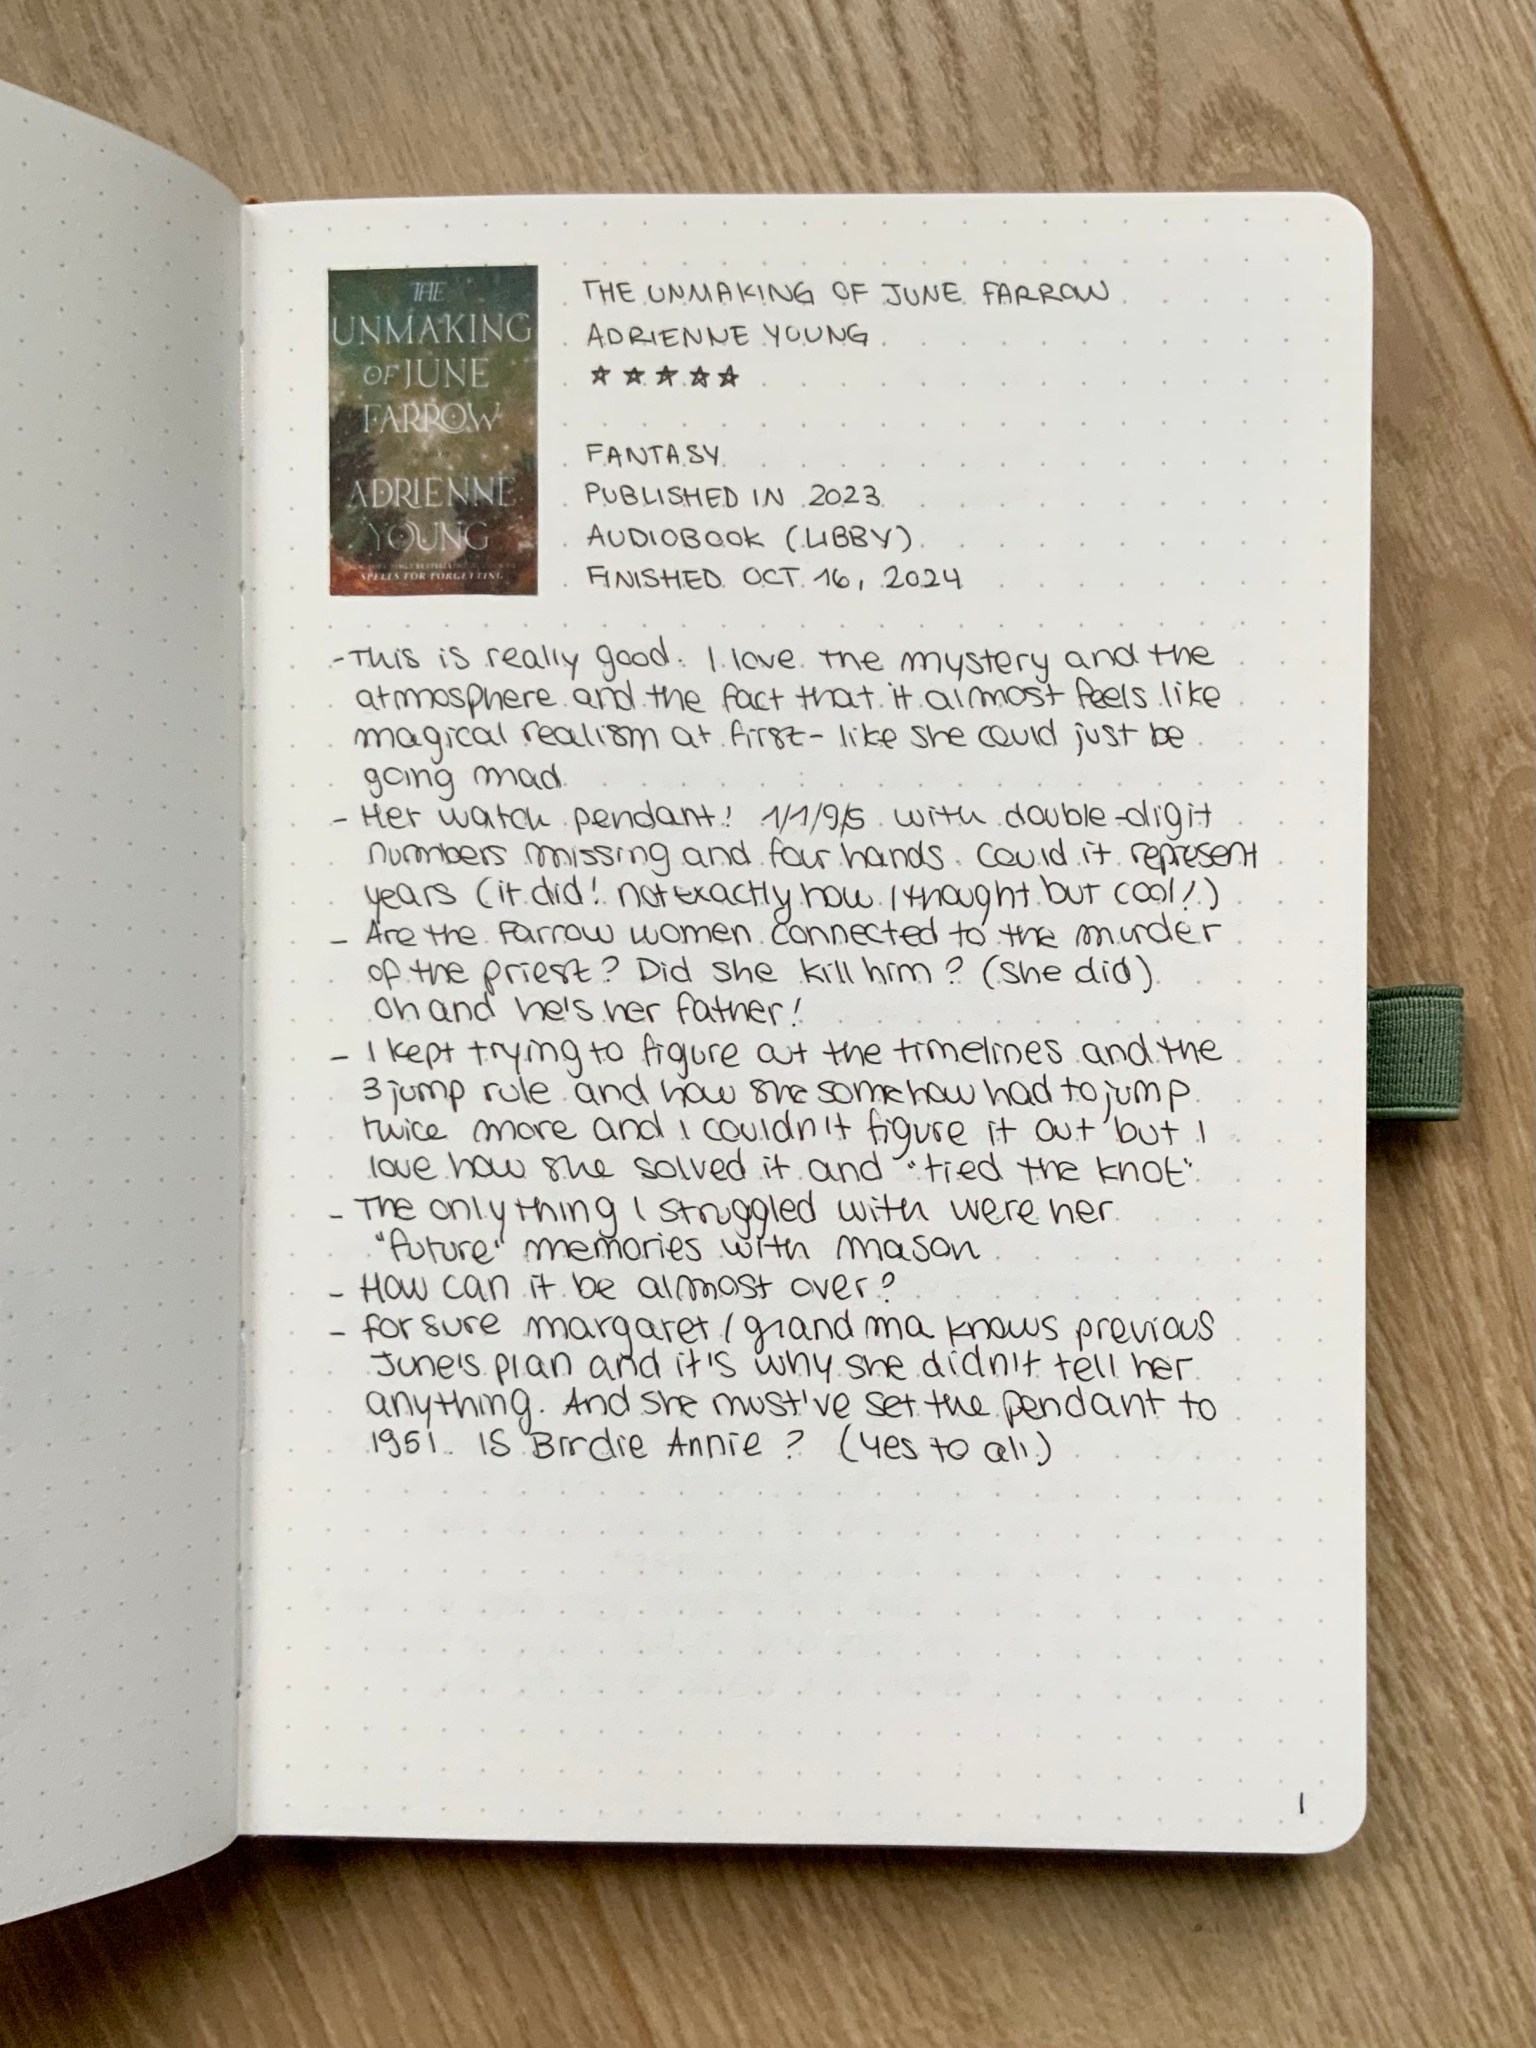 THE
UNMAKING
OF JUNE
FARROW
ADRIENNE
YOUNG
SPELLS FOR FORGETTING
THE UNMAKING OF JUNE FARROW
ADRIENNE YOUNG
☆☆☆☆☆
FANTASY
PUBLISHED IN 2023
AUDIOBOOK (LIBBY)
FINISHED OCT. 16, 2024
- This is really good. I love the mystery and the
atmosphere and the fact that it almost feels like
magical realism at first - like she could just be
going mad
- Her watch pendant! 1/1/9/5 with double-digit
numbers missing and four hands. Could it represent
years (it did! not exactly how I thought but cool!)
- Are the Farrow women connected to the murder
of the priest? Did she kill him? (she did)
oh and he's her father!
- I kept trying to figure out the timelines and the
3 jump rule and how she somehow had to jump
twice more and I couldn't figure it out but I
love how she solved it and "tied the knot"
- The only thing I struggled with were her
"future" memories with mason
- How can it be almost over?
- for sure margaret/grandma knows previous
June's plan and it's why she didn't tell her
anything. And she must've set the pendant to
1951. Is Birdie Annie? (yes to all)
1